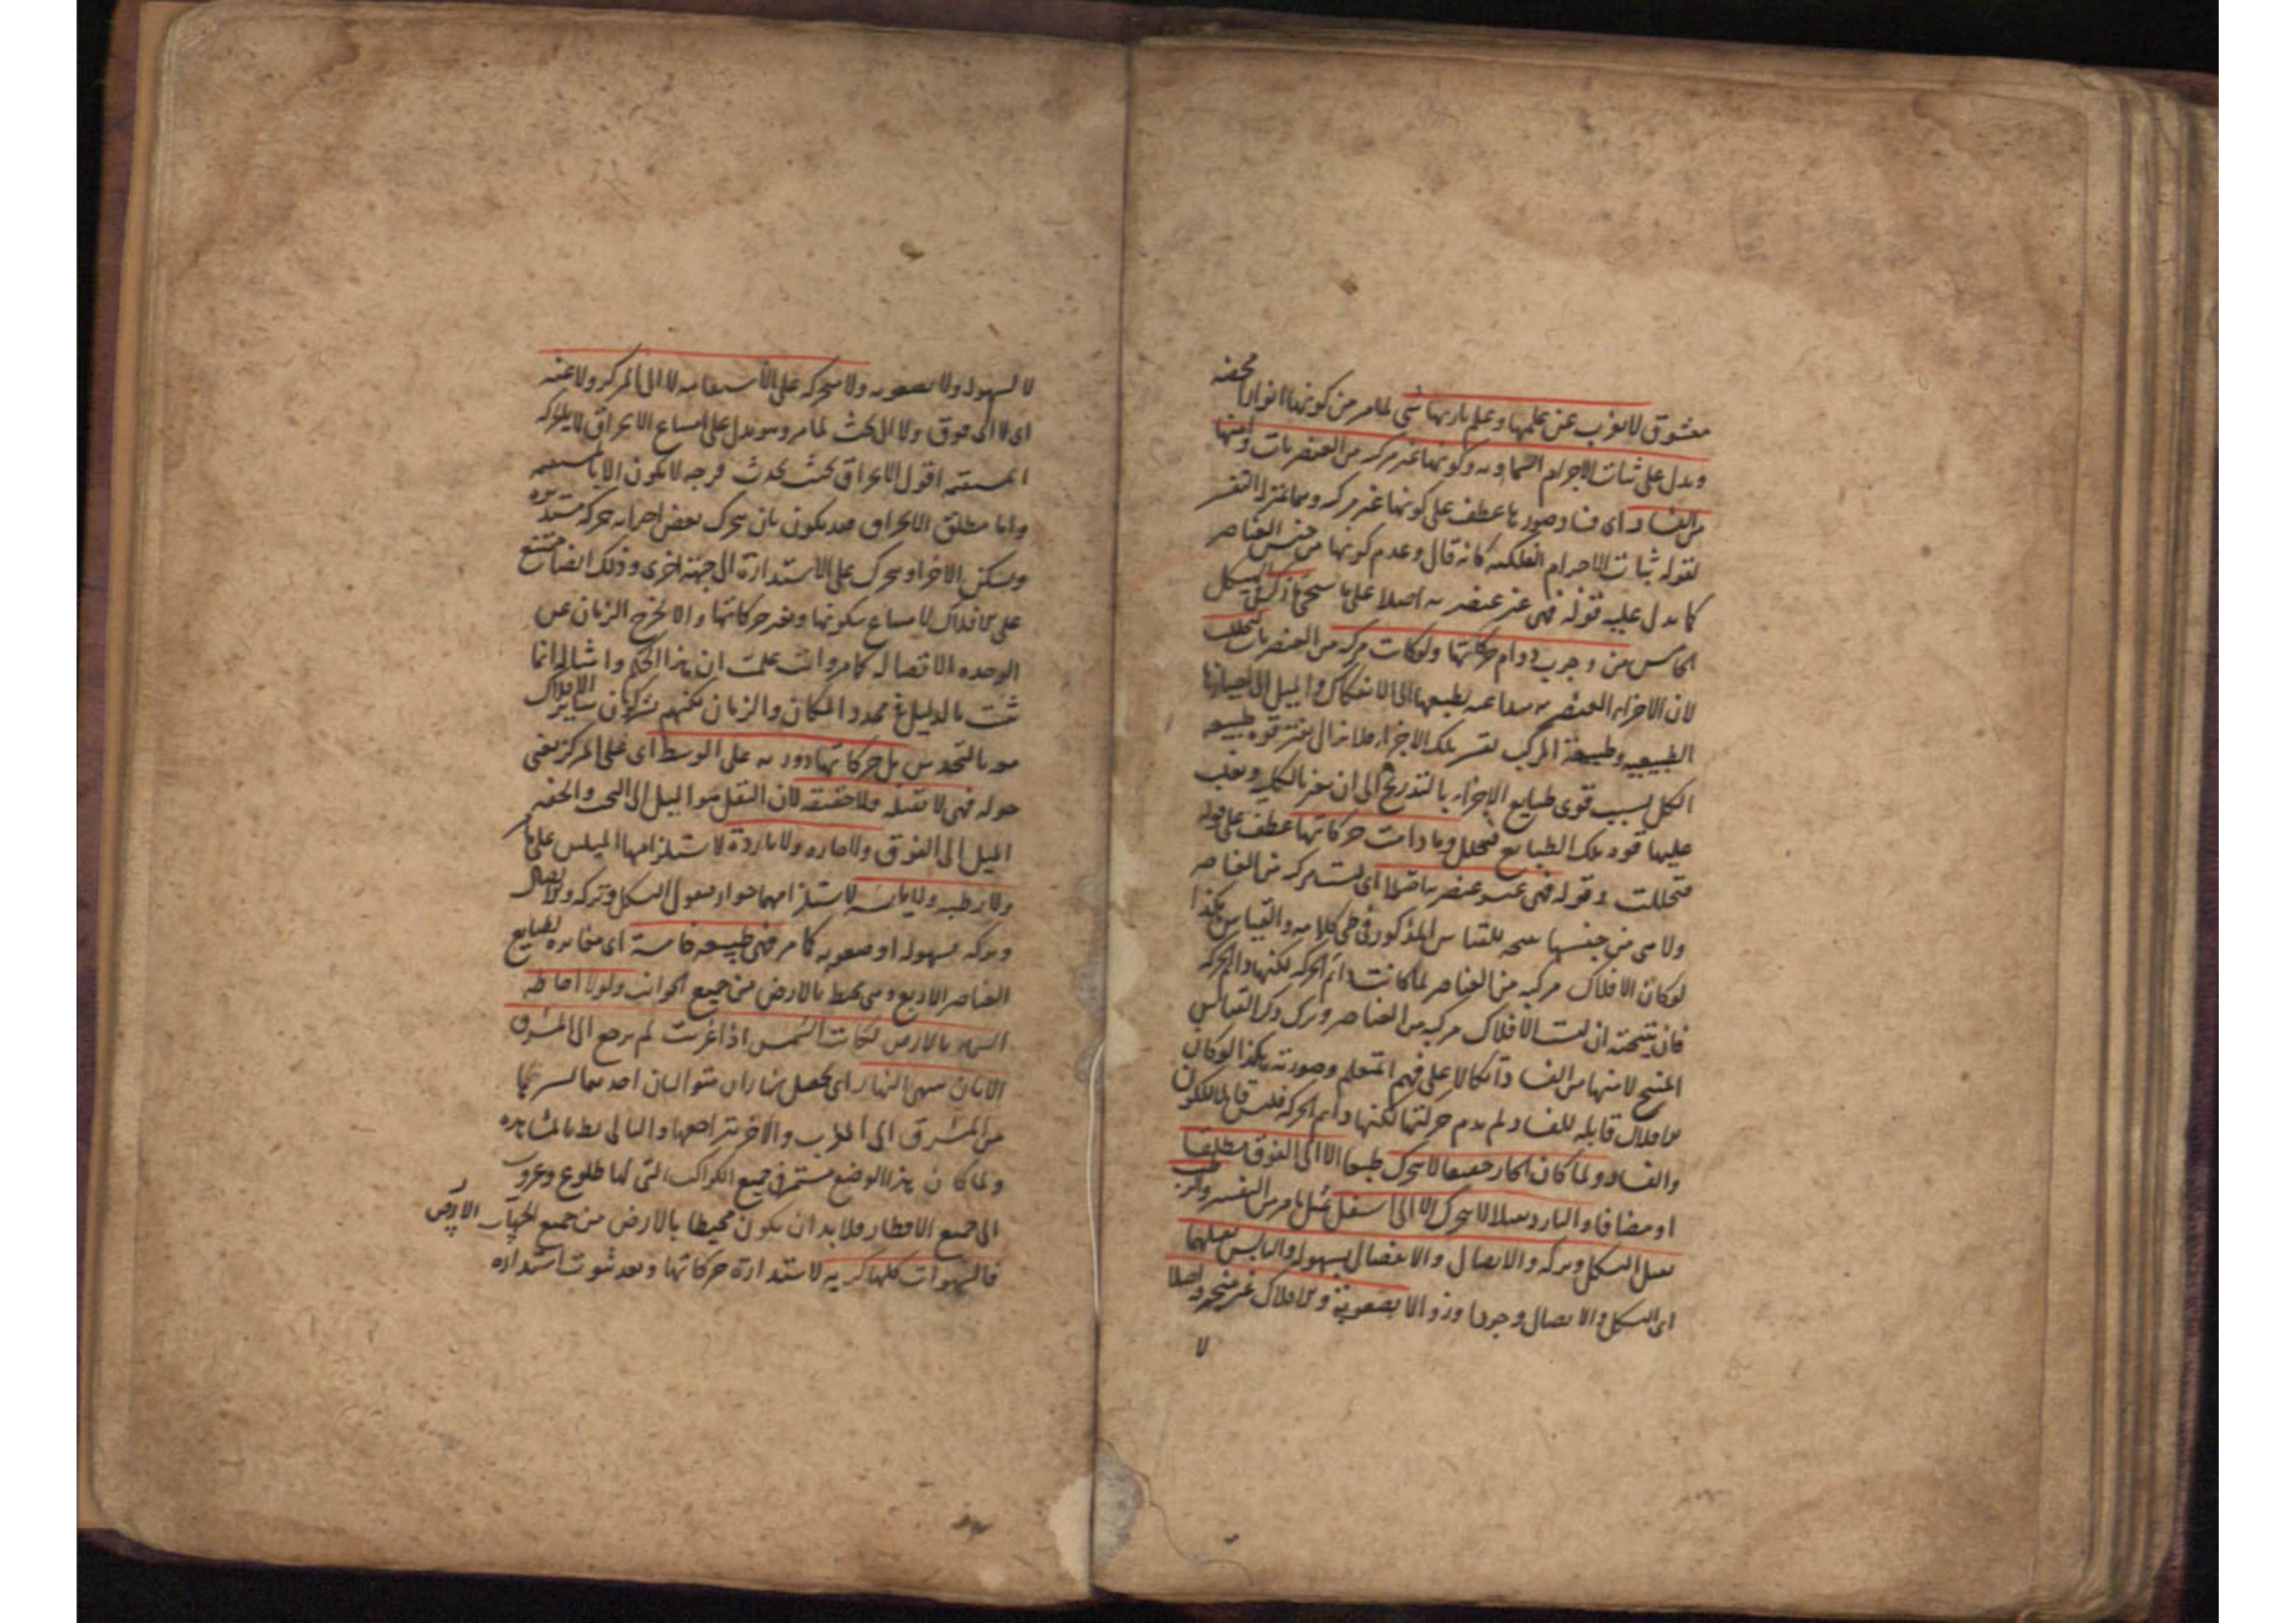 معشوق لا يعزب عن علمها وعلم باريها شى لما مر من كونهما انوارا محضه
ويدل على ثبات الاجرام السماويه وكونها غير مركبه من العنصريات وامنها
من الفساد اى فساد صورها عطف على كونها غير مركبه وهما بمنزله التفسير
لقوله ثبات الاجرام الفلكيه كانه قال وعدم كونها من جنس العناصر
كما يدل عليه قوله فهى غير عنصريه اصلا على ما سيجئ فى الهيكل
الخامس من وجوب دوام حركاتها ولو كانت مركبه من العنصريات لتحللت
لان الاجزاء العنصريه متداعيه بطبعها الى الانفكاك والميل الى احيازها
الطبيعيه وطبيعة المركب تقسر تلك الاجزاء فلا يزال يفتر قوه طبيعه
الكل بسبب قوى طبايع الاجزاء بالتدريج الى ان يعجز بالكليه ويغلب
عليها قوه تلك الطبايع فتحلل وما دامت حركاتها عطف على قوله
فتحللت وقوله فهى غير عنصريه اصلا اى ليست مركبه من العناصر
ولا هى من جنسها نتيجه للقياس المذكور فى طى كلامه والقياس هكذا
لو كان الافلاك مركبه من العناصر لما كانت دائم الحركه لكنها دائم الحركه
فان نتيجته ان ليست الافلاك مركبه من العناصر وترك ذكر القياس
المنتج لامنها من الفساد اتكالا على فهم المتعلم وصورته هكذا لو كان
الافلاك قابله للفساد لم يدم حركتها لكنها دائم الحركه فليس قابلا للكون
والفساد ولما كان الحار خفيفا لا يتحرك طبعا الا الى الفوق مطلقا
او مضافا والبارد ثقيلا لا يتحرك الا الى اسفل مثل ما مر من التفسير والرطب
يقبل الشكل وتركه والاتصال والانفصال بسهوله واليابس يقبلهما
اى الشكل والاتصال وجودا وزوالا بصعوبة والافلاك غير منخرقه اصلا
لا
لا لسهوله ولا بصعوبه ولا متحركه على الاستقامه لا الى المركز ولا عنه
اى لا الى فوق ولا الى تحت لما مر وهو يدل على امتناع الانخراق لا بالحركه
المستقيمه اقول الانخراق بحيث يحدث فرجه لا يكون الا بالمستقيمه
واما مطلق الانخراق فقد يكون بان يتحرك بعض اجزايه حركه مستديره
ويسكن الاخر او يتحرك على الاستدارة الى جهة اخرى وذلك ايضا ممتنع
على الافلاك لامتناع سكونها وتغير حركاتها والا لخرج الزمان عن
الوحده الاتصاليه كما مر وانت علمت ان هذا الحكم وامثاله انما
ثبت بالدليل فى محدد المكان والزمان لكنهم يشركون ساير الافلاك
معه بالتحدس بل حركاتها دوريه على الوسط اى على المركز يعنى
حوله فهى لا ثقيله ولا خفيفه لان الثقل هو الميل الى التحت والخفه
الميل الى الفوق ولا حاره ولا باردة لاستلزامهما الميلين على ما مر
ولا رطبه ولا يابسه لاستلزامهما جواز قبول الشكل وتركه والاتصال
وتركه بسهوله او صعوبه كما مر فهى طبيعه خامسة اى مغايره لطبايع
العناصر الاربع وهى محيطه بالارض من جميع الجوانب ولولا احاطه
السماء بالارض لكانت الشمس اذا غربت لم يرجع الى المشرق
من المشرق الى المغرب والاخر بتراجعها والتالى بط بالمشاهده
ولما كان هذا الوضع مستمرا فى جميع الكواكب التى لها طلوع وغروب
الى جميع الاقطار فلا بد ان يكون محيطا بالارض من جميع الجهات الارض
فالسموات كلها كريه لاستدارة حركاتها وبعد ثبوت استداره